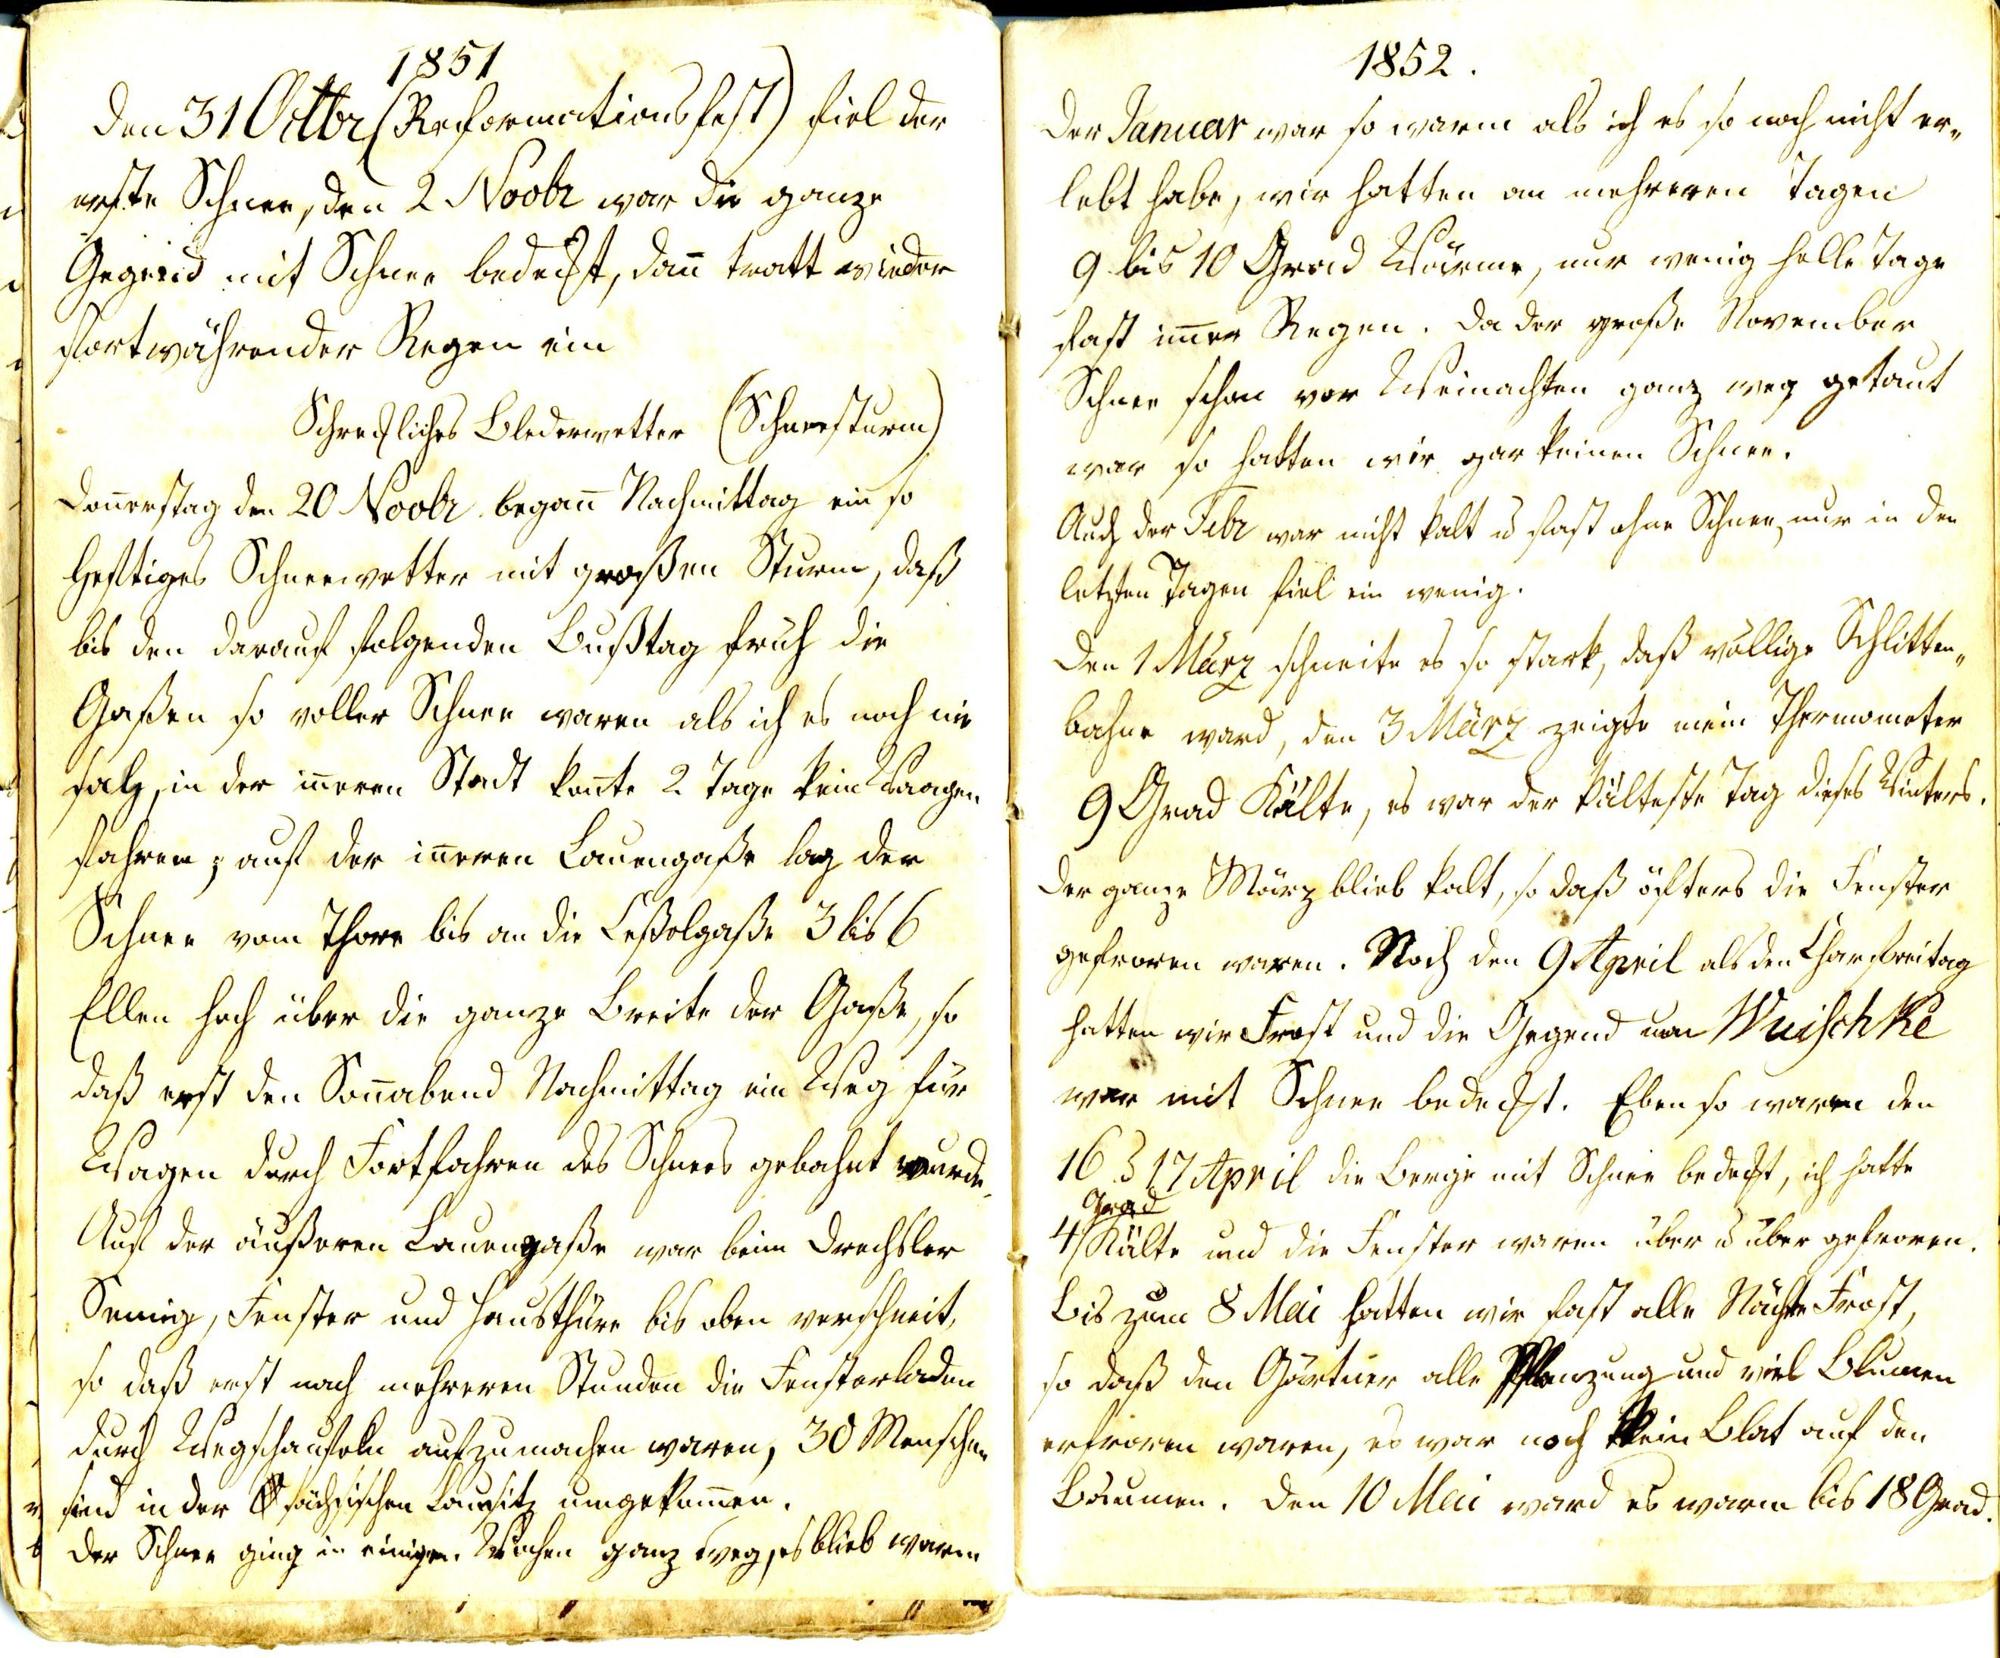 1851
Den 31 Octbr (Reformationsfest) fiel der
erste Schnee, den 2 Novbr war die ganze
Gegend mit Schnee bedeckt, dan̄ tratt wieder
fortwährender Regen ein
Schreckliches Blederwetter (Schneesturm)
Don̄erstag den 20 Novbr began̄ Nachmittag ein so
heftiges Schneewetter mit großen Sturm, daß
bis den darauf folgenden Bußtag früh die
Gaßen so voller Schnee waren als ich es noch nie
sah, in der in̄eren Stadt kon̄te 2 Tage kein Waagen
fahren; auf der in̄eren Lauengaße lag der
Schnee vom Thore bis an die Keßelgaße 3 bis 6
Ellen hoch über die ganze Breite der Gaße, so
daß erst den Son̄abend Nachmittag ein Weg für
Wagen durch Fortfahren des Schnees gebahnt wurde.
Auf der äußeren Lauengaße war beim Drechsler
Fenster und Hausthüre bis oben verschneit,
so daß erst nach mehreren Stunden die Fensterladen
durch Wegschaufeln aufzumachen waren, 30 Menschen
sind in der sächsischen Lausitz umgekom̄en.
Der Schnee ging in einigen Wochen ganz weg, es blieb warm
1852.
Der Januar war so warm als ich es so noch nicht er„
lebt habe, wir hatten an mehreren Tagen
9 bis 10 Grad Wärme, nur wenig helle Tage
fast im̄er Regen. Da der große November
Schnee schon vor Weinachten ganz weg getaut
war so hatten wir gar keinen Schnee.
Auch der Febr war nicht kalt u fast ohne Schnee, nur in den
letzten Tagen fiel ein wenig.
Den 1 März schneite es so stark, daß völlige Schlitten„
bahne ward, den 3 März zeigte mein Thermometer
9 Grad Kälte, es war der kälteste Tag dieses Winters.
Der ganze März blieb kalt, so daß öfters die Fenster
gefroren waren. Noch den 9 April als den Charfreitag
hatten wir Frost und die Gegend um Wuischke
war mit Schnee bedeckt. Eben so waren den
16 u 17 April die Berge mit Schnee bedeckt, ich hatte
Grad
4 Kälte und die Fenster waren über u über gefroren.
Bis zum 8 Mai hatten wir fast alle Nächte Frost,
so daß den Gärtner alle Pflanzung und viel Blumen
erfroren waren, es war noch kein Blat auf den
Bäumen. Den 10 Mai ward es warm bis 18 Grad.